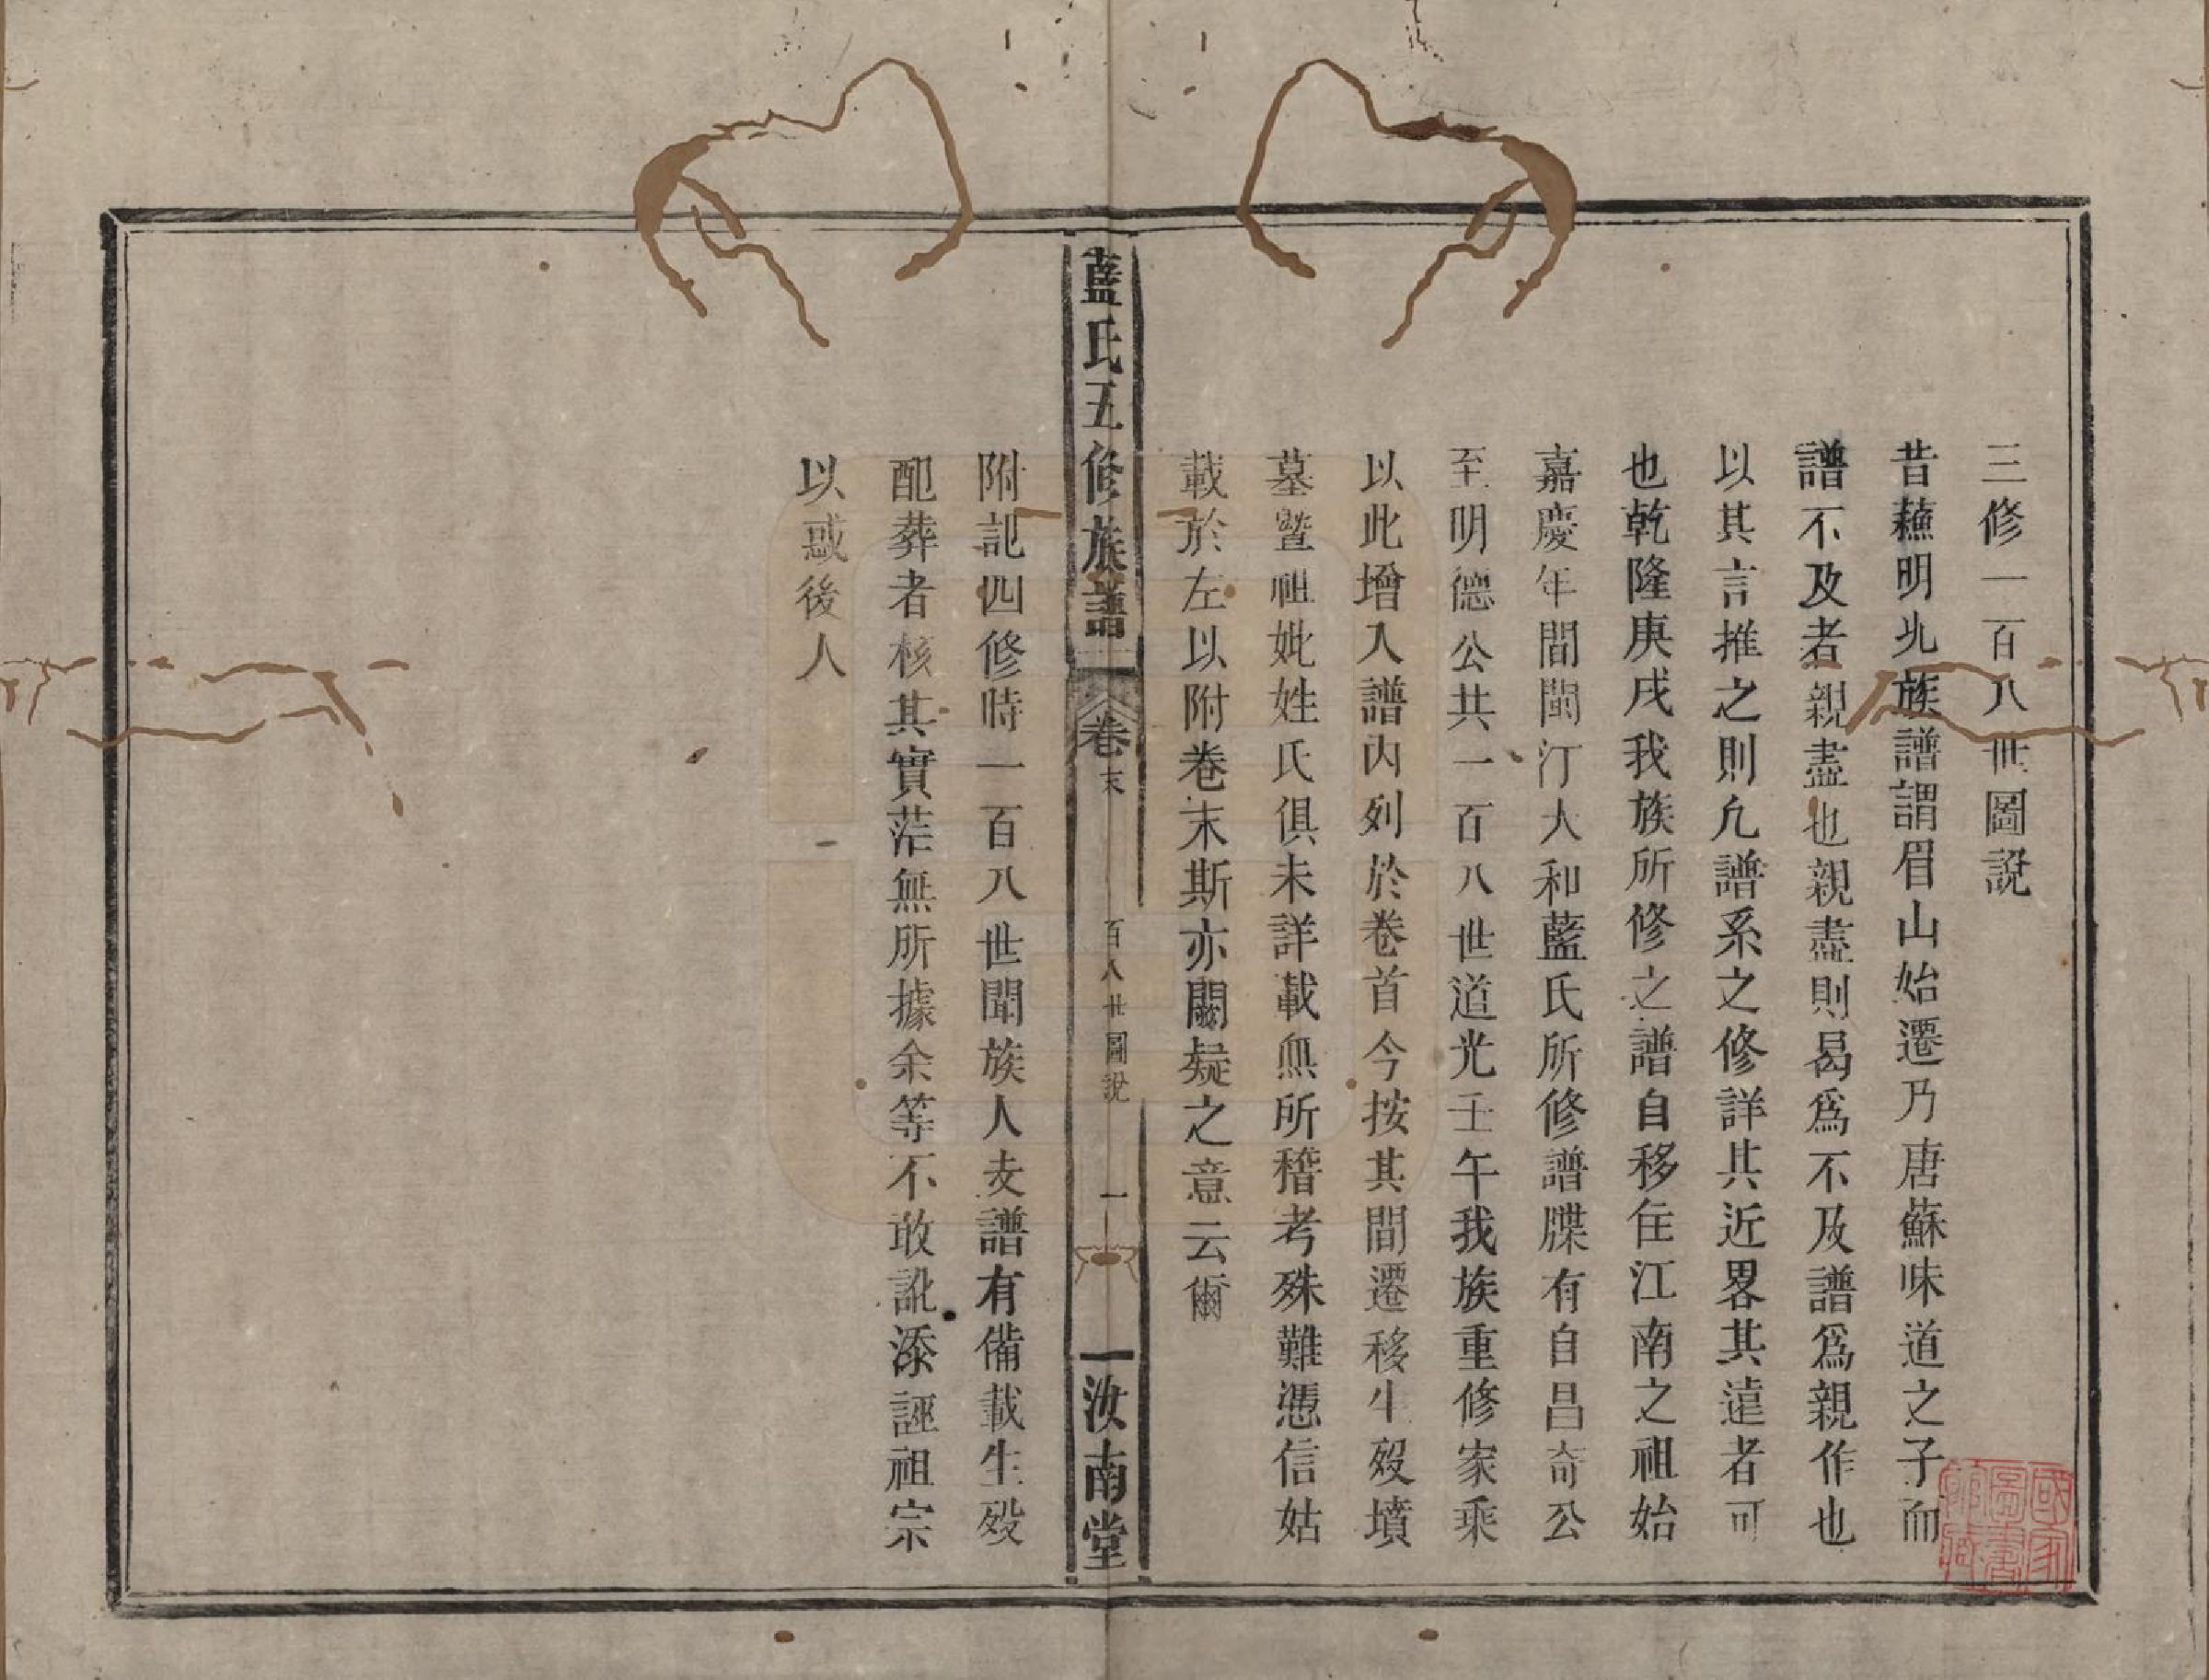 三修一百八世圖說
昔蘓明允族譜謂眉山始遷乃唐蘇味道之子而
譜不及者親盡也親盡則曷爲不及譜爲親作也
以其言推之則凢譜系之修詳其近畧其遠者可
也乾隆庚戌我族所修之譜自移住江南之祖始
嘉慶年間閩汀大和藍氏所修譜牒有自昌奇公
至明德公共一百八世道光壬午我族重修家乘
以此增入譜内列於卷首今按其間遷移生殁墳
墓暨祖妣姓氏俱未詳載無所稽考殊難憑信姑
載於左以附卷末斯亦闕疑之意云爾
藍氏五修族譜
卷末
百八世圖說
一
汝南堂
附記四修時一百八世聞族人支譜有備載生殁
配葬者核其實茫無所據余等不敢訛添誣祖宗
以惑後人
國家圖書館藏